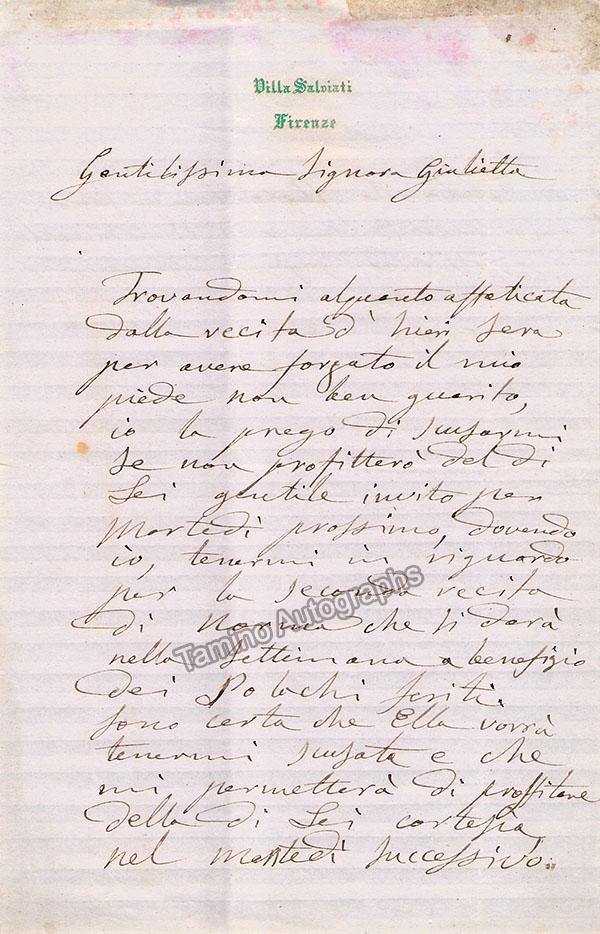 Villa Salviati
Firenze
Gentilissima Signora Giulietta
Trovandomi alquanto affaticata
dalla recita d' hieri sera
per avere forzato il mio
piede non ben guarito,
io la prego di scusarmi
se non profitterò del di
Lei gentile invito per
Martedì prossimo, dovendo
io, tenermi in riguardo
per la seconda recita
di Norma che si darà
nella settimana a benefizio
dei Polachi feriti.
Sono certa che Ella vorrà
tenermi scusata e che
mi permetterà di profittare
della di Lei cortesia
nel martedì successivo.
Tamino Autographs